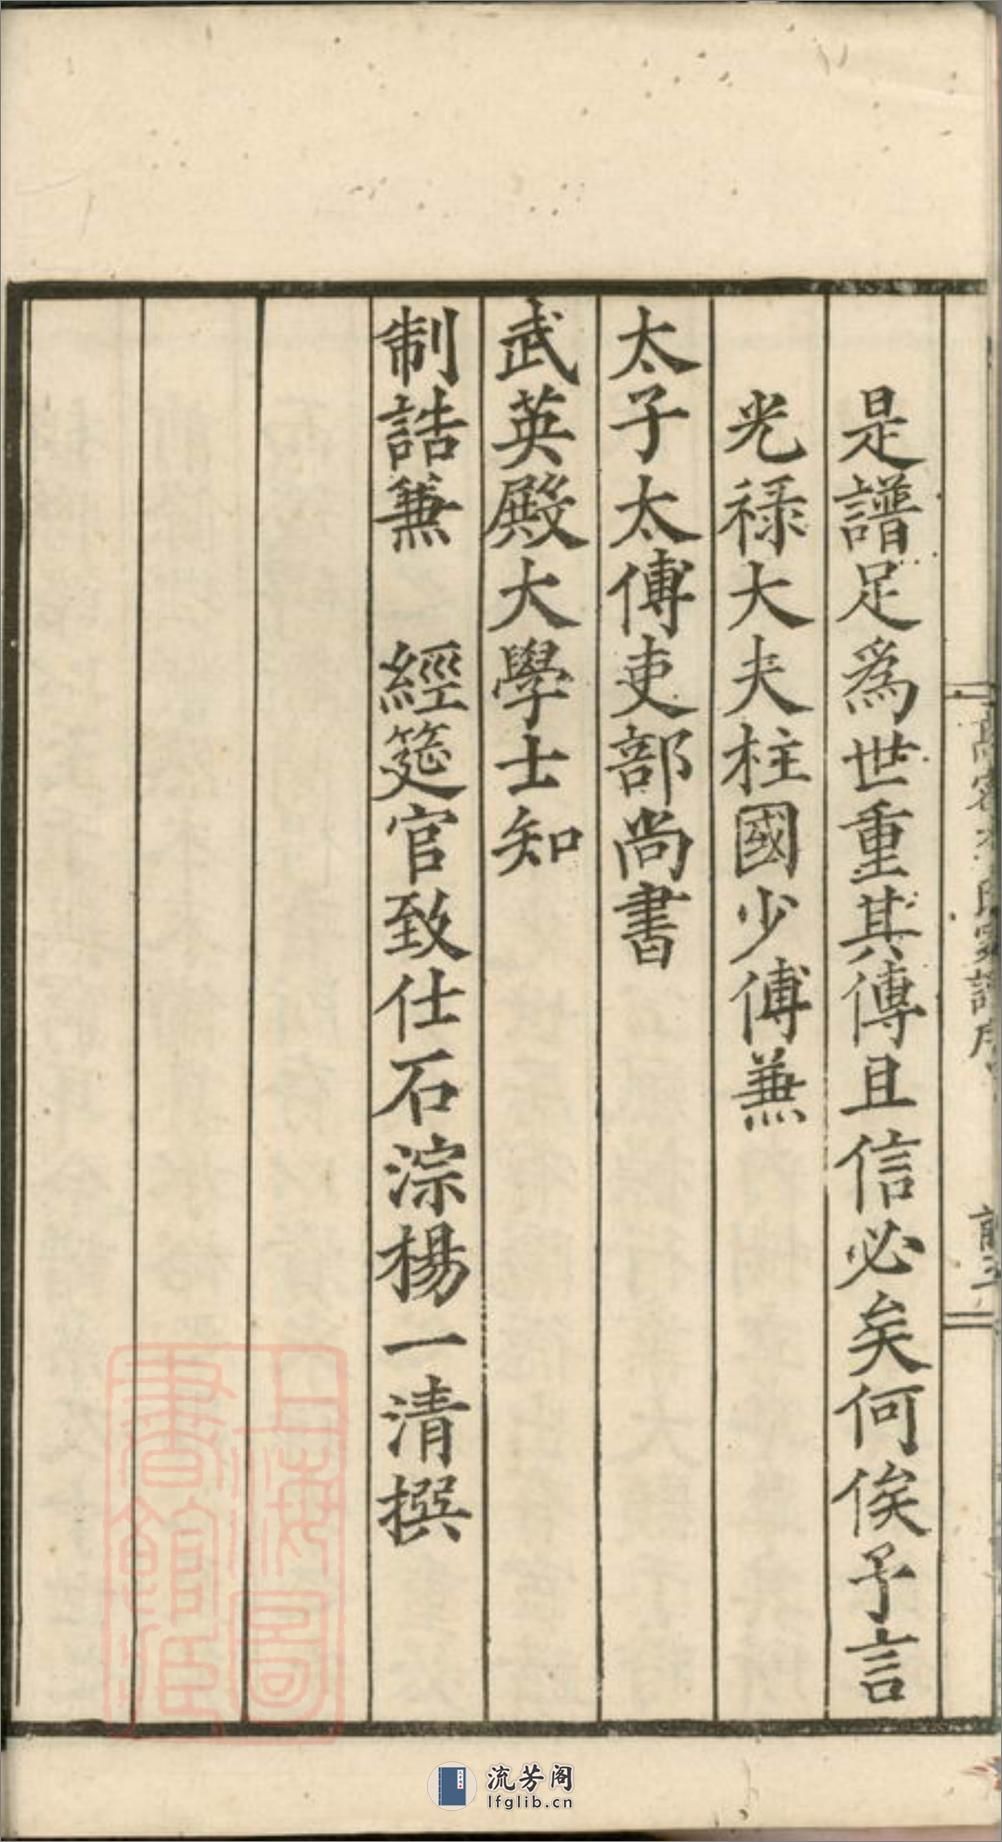 是譜足爲世重其傳且信必矣何俟予言
光祿大夫柱國少傅兼
太子太傅吏部尚書
武英殿大學士知
制誥兼　經筵官致仕石淙楊一清撰
氏家譜序
前五
上海圖
書館藏
流芳阁
lfglib.cn